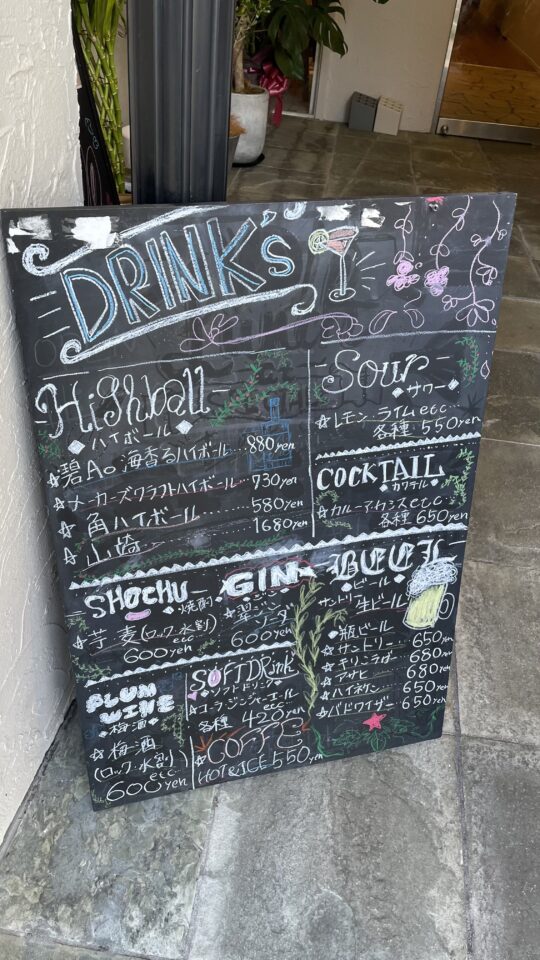 DRINK's
Highball
◆ハイボール◆
☆碧Ao 海香るハイボール…880yen
☆メーカーズクラフトハイボール…730yen
☆角ハイボール……580yen
☆山崎 1680yen
Sour
◆サワー◆
☆レモン.ライムecc…
各種 550yen
COCKTAIL
◆カクテル◆
☆カルーア・カシスetc
各種 650yen
SHOCHU
◆焼酎◆
☆芋.麦(ロック.水割)
ecc
600yen
GIN
◆ジン◆
☆翠ジン
ソーダ
600yen
BEEL
◆ビール◆
サントリー生ビール
◆瓶ビール◆
☆サントリー…650yen
☆キリンラガー…680yen
☆アサヒ……680yen
☆ハイネケン…650yen
☆バドワイザー…650yen
PLUM
WINE
◆梅酒◆
☆梅酒
(ロック.水割)
ecc…
600yen
SOFTDRink
◆ソフトドリンク◆
☆コーラ.ジンジャーエール
ecc…
各種 420yen
☆COFFE
HOT&ICE 550yen